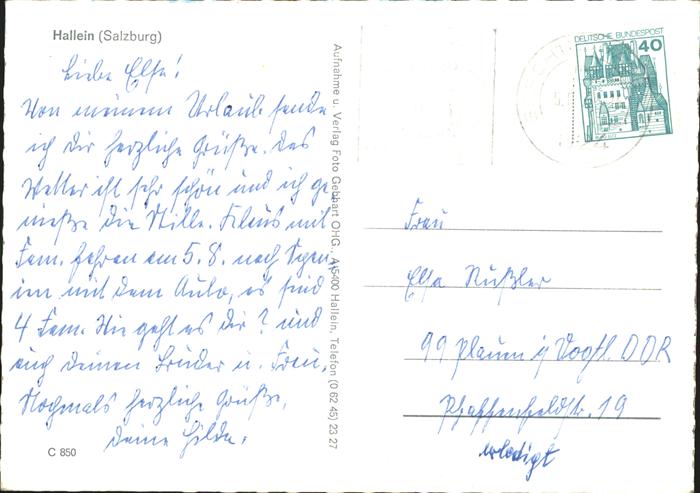 Hallein (Salzburg)
Liebe Elsa!
Von meinem Urlaub sende
ich Dir herzliche Grüße. Das
Wetter ist sehr schön und ich ge-
nieße die Stille. Klaus mit
Fam. fahren am 5.8. nach Spani-
en mit dem Auto, es sind
4 Fam. Wie geht es Dir? und
auch Deinem Bruder u. Frau.
Nochmals herzliche Grüße,
Deine Hilde.
C 850
Aufnahme u. Verlag Foto Gebhart OHG., A-5400 Hallein, Telefon (0 62 45) 23 27
DEUTSCHE BUNDESPOST
40
Frau
Elsa Rußler
99 Plauen i/ Vogtl. DDR
Pfaffenfeldstr. 19
erledigt